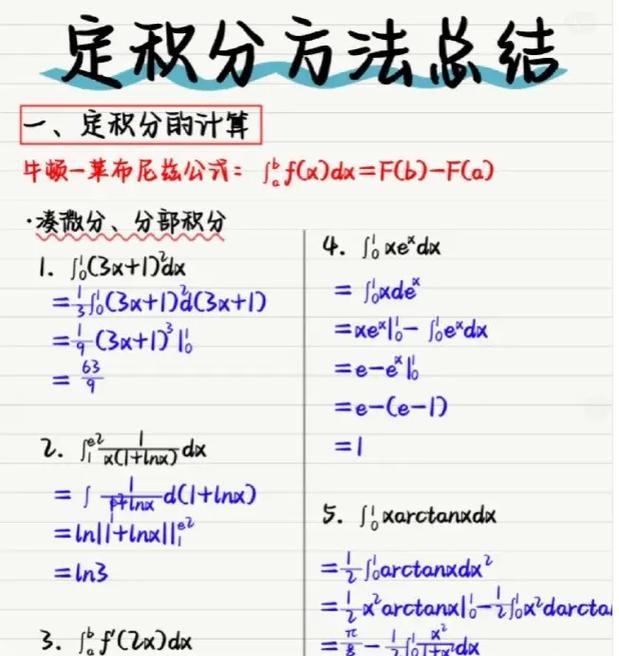 定积分方法总结
一、定积分的计算
牛顿-莱布尼兹公式: ∫ₐᵇf(x)dx=F(b)-F(a)
·凑微分、分部积分
1. ∫₀¹(3x+1)²dx
=1/3∫₀¹(3x+1)²d(3x+1)
=1/9(3x+1)³|₀¹
=63/9
2. ∫₁^(e²) 1/(x(1+lnx)) dx
=∫ 1/(1+lnx) d(1+lnx)
=ln|1+lnx||₁^(e²)
=ln3
3. ∫ₐᵇf'(2x)dx
4. ∫₀¹xeˣdx
=∫₀¹xdeˣ
=xeˣ|₀¹-∫₀¹eˣdx
=e-eˣ|₀¹
=e-(e-1)
=1
5. ∫₀¹xarctanxdx
=1/2∫₀¹arctanxdx²
=1/2x²arctanx|₀¹-1/2∫₀¹x²darcta
=π/8-1/2∫₀¹x²/(1+x²)dx